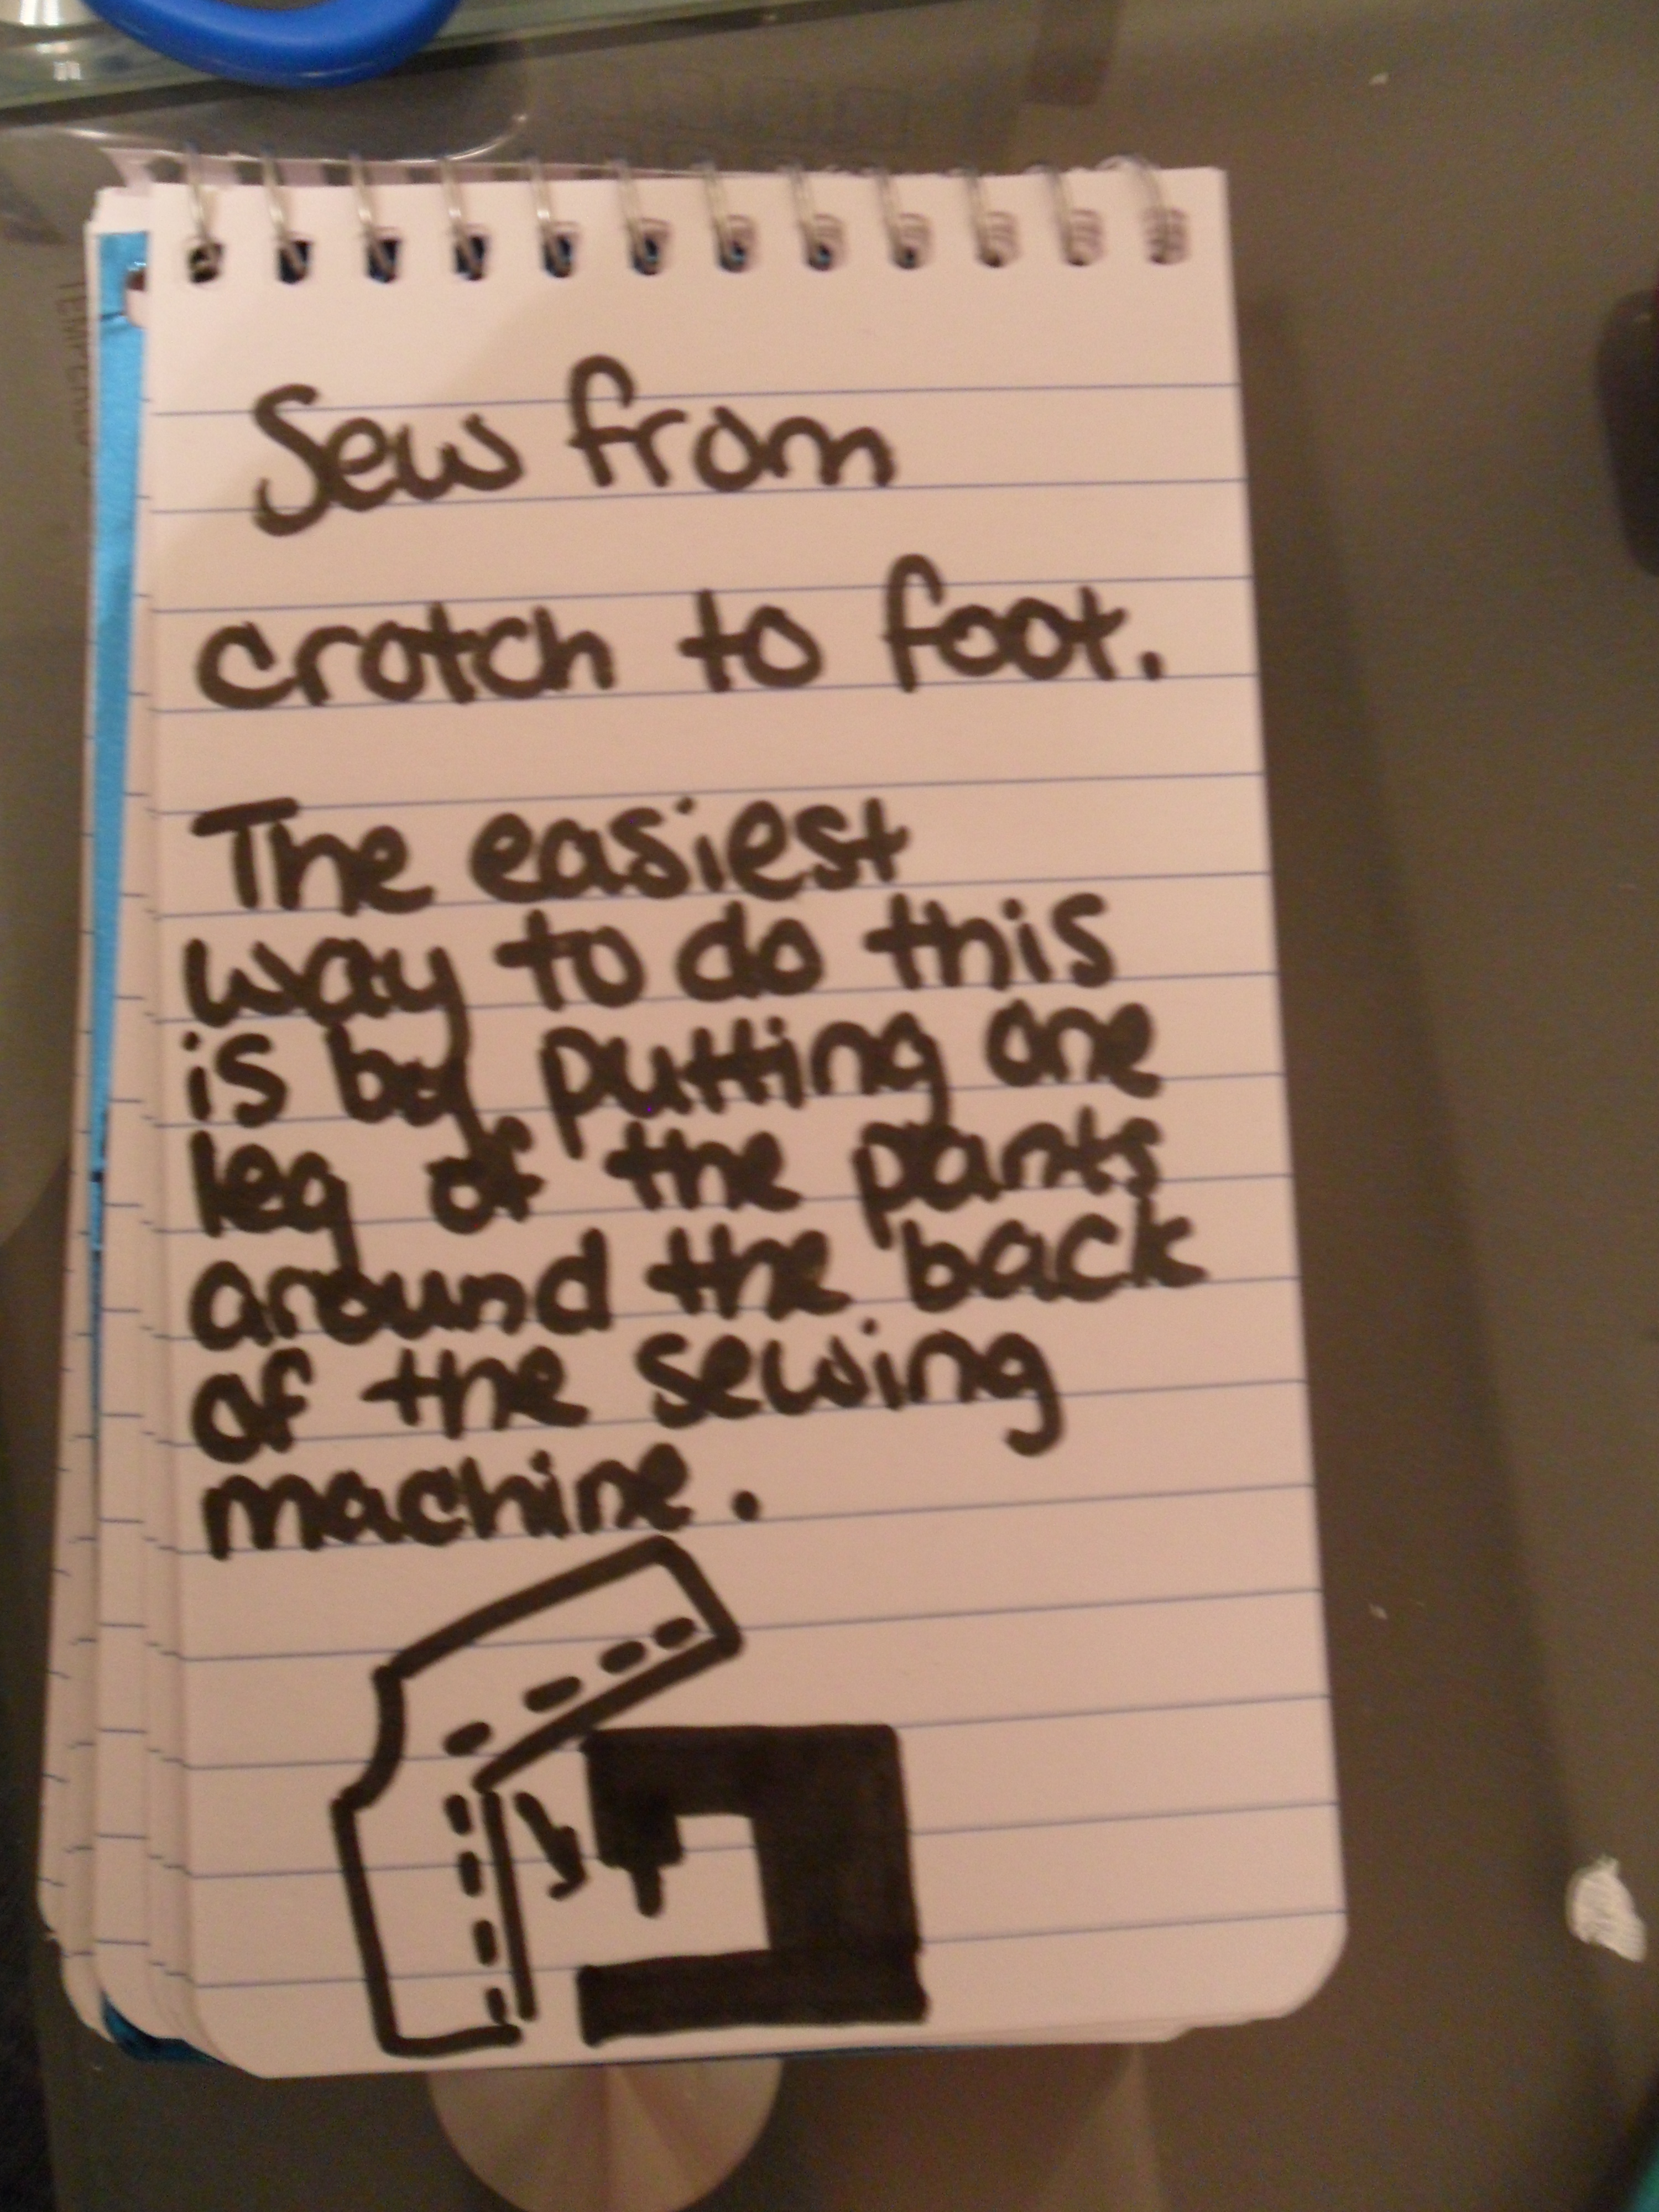 Sew from
crotch to foot.
The easiest
way to do this
is by putting one
leg of the pants
around the back
of the sewing
machine.